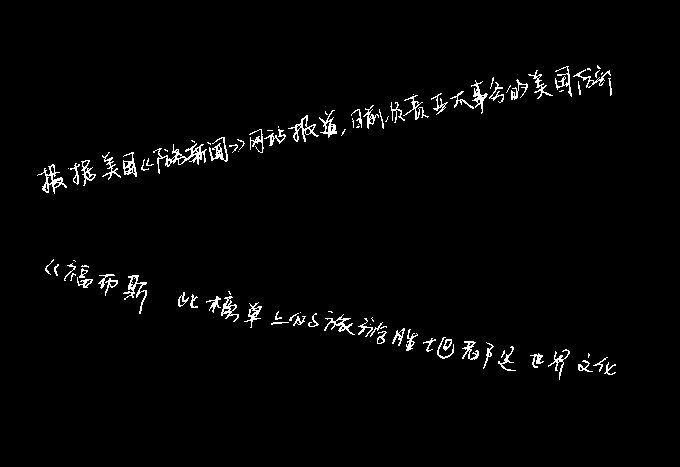 报据美国《防务新闻》网站报道,目前负责亚太事务的美国防部
《福布斯 此榜单上的旅游胜地都是世界文化